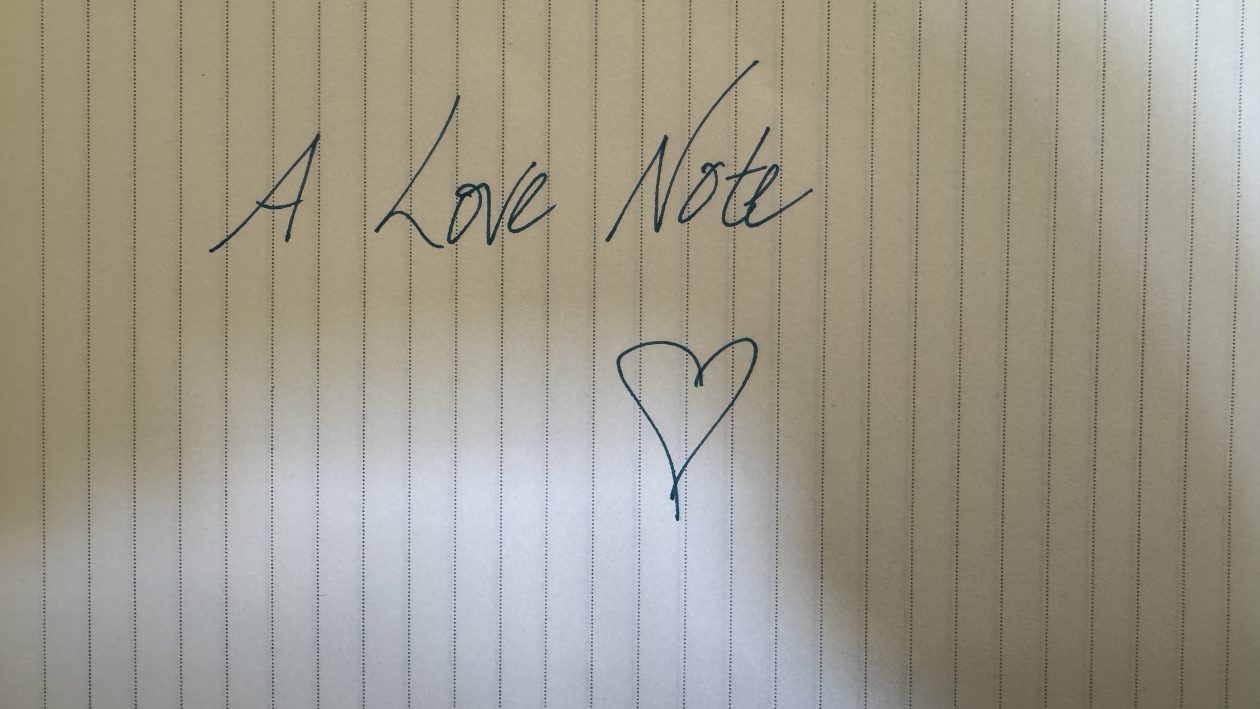 A Love Note